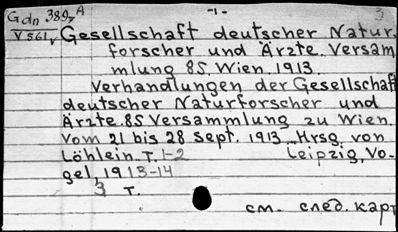 Gdn 389, A -1- 3
V 561, Gesellschaft deutscher Natur.
forscher und Ärzte. Versam
mlung 85. Wien. 1913.
Verhandlungen der Gesellschaft
deutscher Naturforscher und
Ärzte. 85 Versammlung zu Wien.
Vom 21 bis 28 Sept. 1913. Hrsg. von
Löhlein. T. 1-2 Leipzig, Vo-
gel, 1913-14
3 T.
см. след. карт